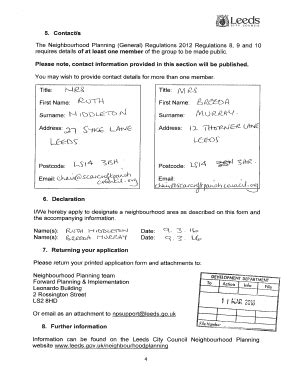 Leeds
CITY COUNCIL
5. Contact/s
The Neighbourhood Planning (General) Regulations 2012 Regulations 8, 9 and 10
requires details of at least one member of the group to be made public.
Please note, contact information provided in this section will be published.
You may wish to provide contact details for more than one member.
Title: MRS
First Name: RUTH
Surname: MIDDLETON
Address: 27 SYKE LANE
LEEDS
Postcode: LS14 3BH
Email: chair@scarcroftparish
council.org
Title: MRS
First Name: BREEDA
Surname: MURRAY
Address: 12 THORNER LANE
LEEDS
Postcode: LS14 3HR
Email:
@scarcroftparishcouncil.org
6. Declaration
I/We hereby apply to designate a neighbourhood area as described on this form and
the accompanying information.
Name(s): RUTH MIDDLETON Date: 9.3.16
Name(s): BREEDA MURRAY Date: 9.3.16
7. Returning your application
Please return your printed application form and attachments to:
Neighbourhood Planning team
Forward Planning & Implementation
Leonardo Building
2 Rossington Street
LS2 8HD
DEVELOPMENT DEPARTMENT
To Action Info File
11 MAR 2016
File Number
Or email as an attachment to npsupport@leeds.gov.uk
8. Further information
Information can be found on the Leeds City Council Neighbourhood Planning
website www.leeds.gov.uk/neighbourhoodplanning
4